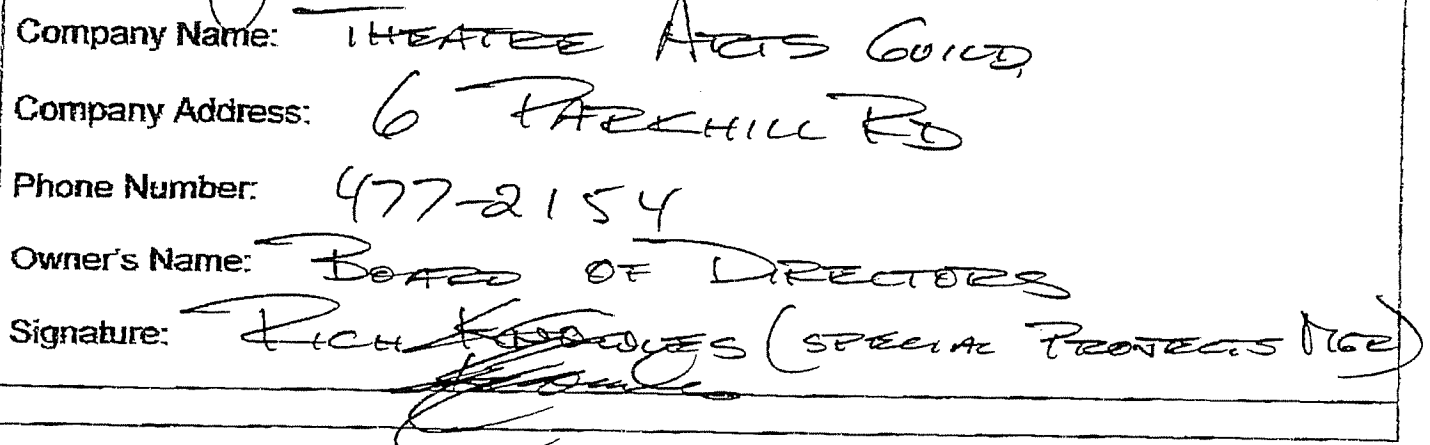 Company Name: THEATRE ARTS GUILD
Company Address: 6 PARKHILL RD
Phone Number: 477-2154
Owner's Name: BOARD OF DIRECTORS
Signature: RICH KNOWLES (SPECIAL PROJECTS MGR)